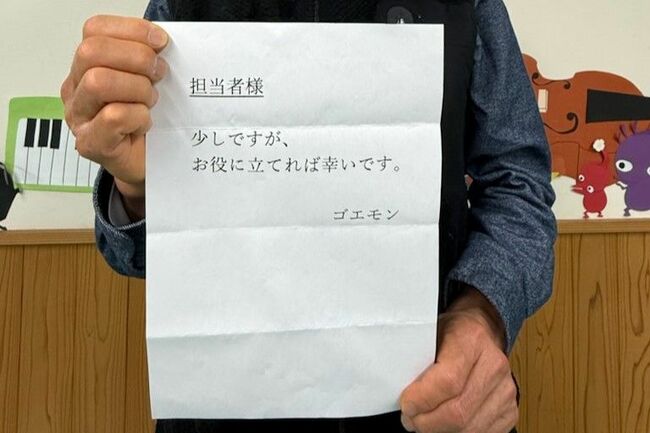 担当者様
少しですが、
お役に立てれば幸いです。
ゴエモン